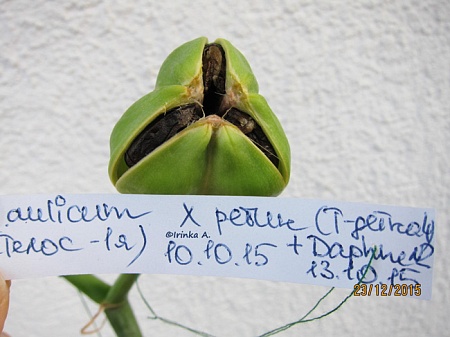 aulicum X petluc (T-getcaly
телос-1я) 10.10.15 + Daphne
13.10.15
©Irinka A.
23/12/2015